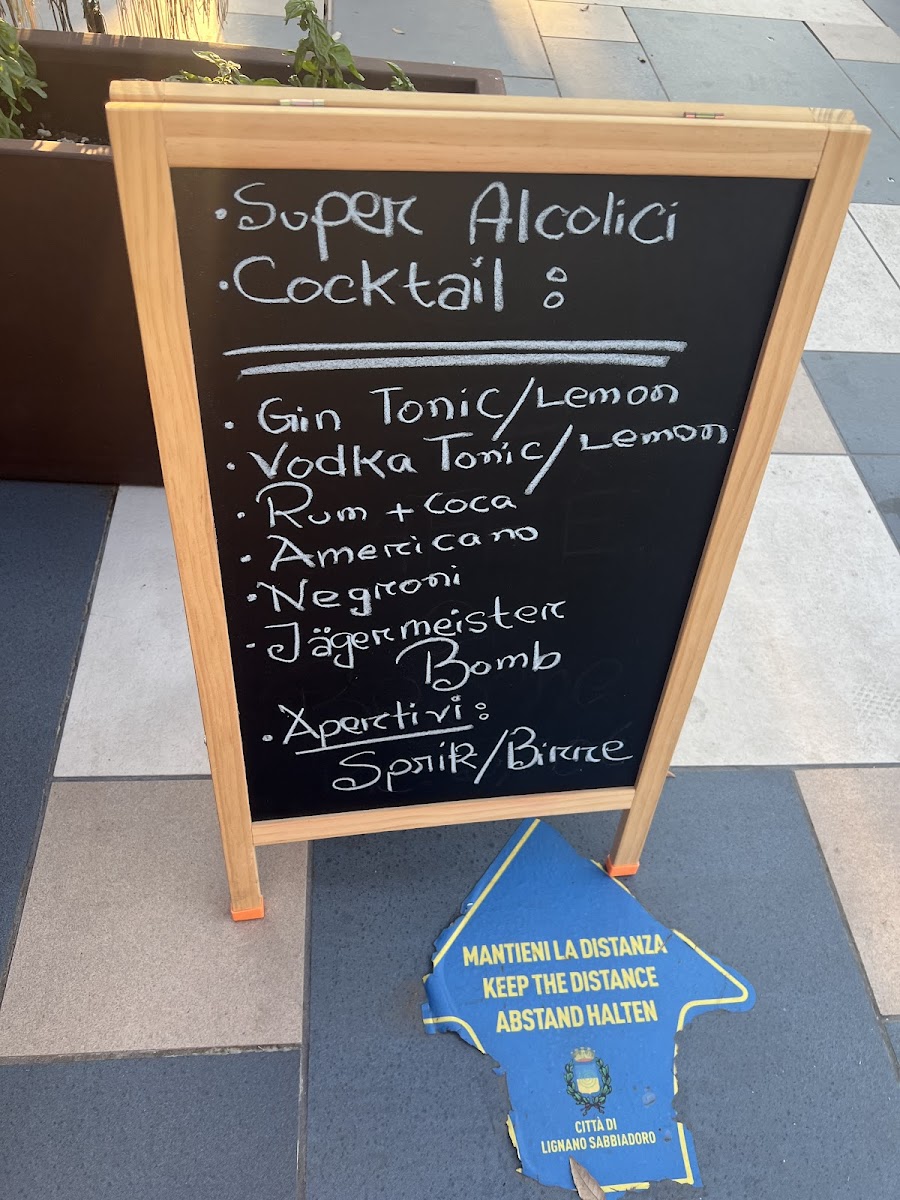 · Super Alcolici
· Cocktail :
· Gin Tonic/Lemon
· Vodka Tonic/Lemon
· Rum + Coca
· Americano
· Negroni
- Jägermeister
Bomb
· Aperitivi :
Sprik/Birre
MANTIENI LA DISTANZA
KEEP THE DISTANCE
ABSTAND HALTEN
CITTÀ DI
LIGNANO SABBIADORO